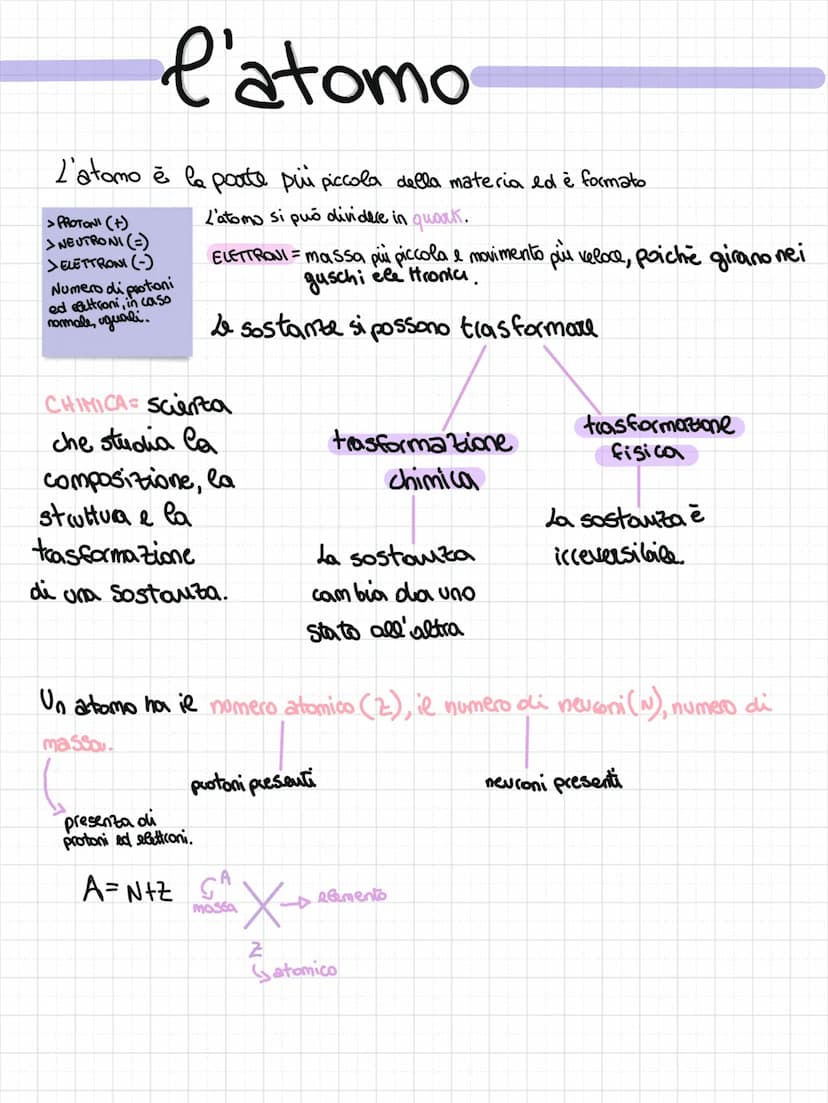 l'atomo
L'atomo è la parte più piccola della materia ed è formato
> PROTONI (+)
> NEUTRONI (=)
> ELETTRONI (-)
Numero di protoni
ed elettroni, in caso
normale, uguali.
L'atomo si può dividere in quark.
ELETTRONI = massa più piccola e movimento più veloce, poichè girano nei
guschi elettronici.
Le sostanze si possono trasformare
CHIMICA = scienza
che studia la
composizione, la
struttura e la
trasformazione
di una sostanza.
trasformazione
chimica
La sostanza
cambia da uno
stato all'altra
trasformazione
fisica
La sostanza è
irreversibile.
Un atomo ha il numero atomico (Z), il numero di neuroni (N), numero di
massa.
protoni presenti
neuroni presenti
presenza di
protoni ed elettroni.
A = N+Z
A
massa
X
elemento
Z
atomico